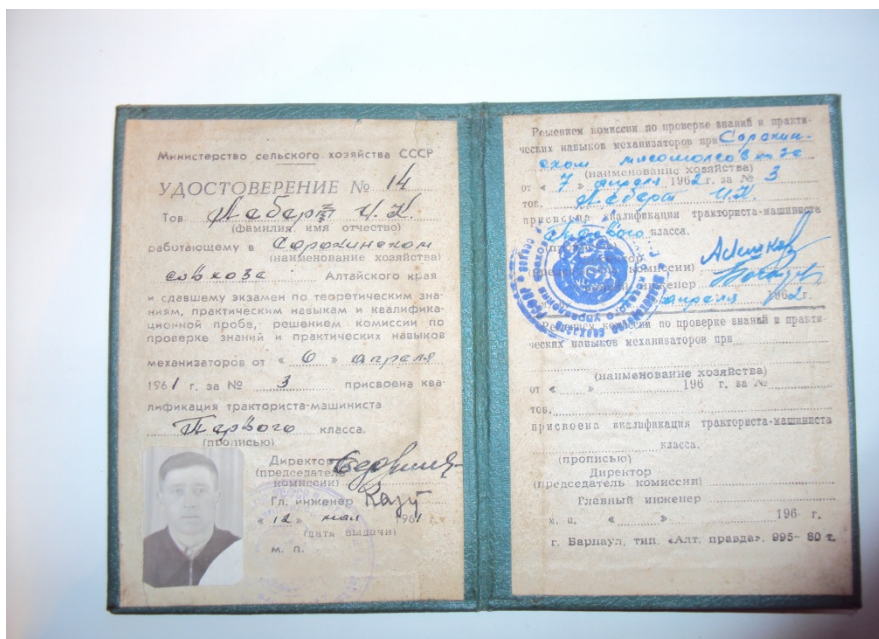 Министерство сельского хозяйства СССР
УДОСТОВЕРЕНИЕ № 14
Тов.
(фамилия, имя отчество)
работающему в Сорокинском
(наименование хозяйства)
совхозе Алтайского края
и сдавшему экзамен по теоретическим зна-
ниям, практическим навыкам и квалифика-
ционной пробе, решением комиссии по
проверке знаний и практических навыков
механизаторов от « 6 » апреля
1961 г. за № 3 присвоена ква-
лификация тракториста-машиниста
Первого класса.
(прописью)
Директор
(председатель
комиссии)
Гл. инженер
« 12 » мая 1961 г.
(дата выдачи)
м. п.
Решением комиссии по проверке знаний и практи-
ческих навыков механизаторов при Сорокин-
ском
(наименование хозяйства)
от « 7 » апреля 1962 г. за № 3
тов.
присвоена квалификация тракториста-машиниста
класса.
(прописью)
Директор
(председатель комиссии)
инженер
апреля 1962 г.
Решением комиссии по проверке знаний и практи-
ческих навыков механизаторов при
(наименование хозяйства)
от « » 196 г. за №
тов.
присвоена квалификация тракториста-машиниста
класса.
(прописью)
Директор
(председатель комиссии)
Главный инженер
м. п. « » 196 г.
г. Барнаул, тип. «Алт. правда». 995— 60 г.